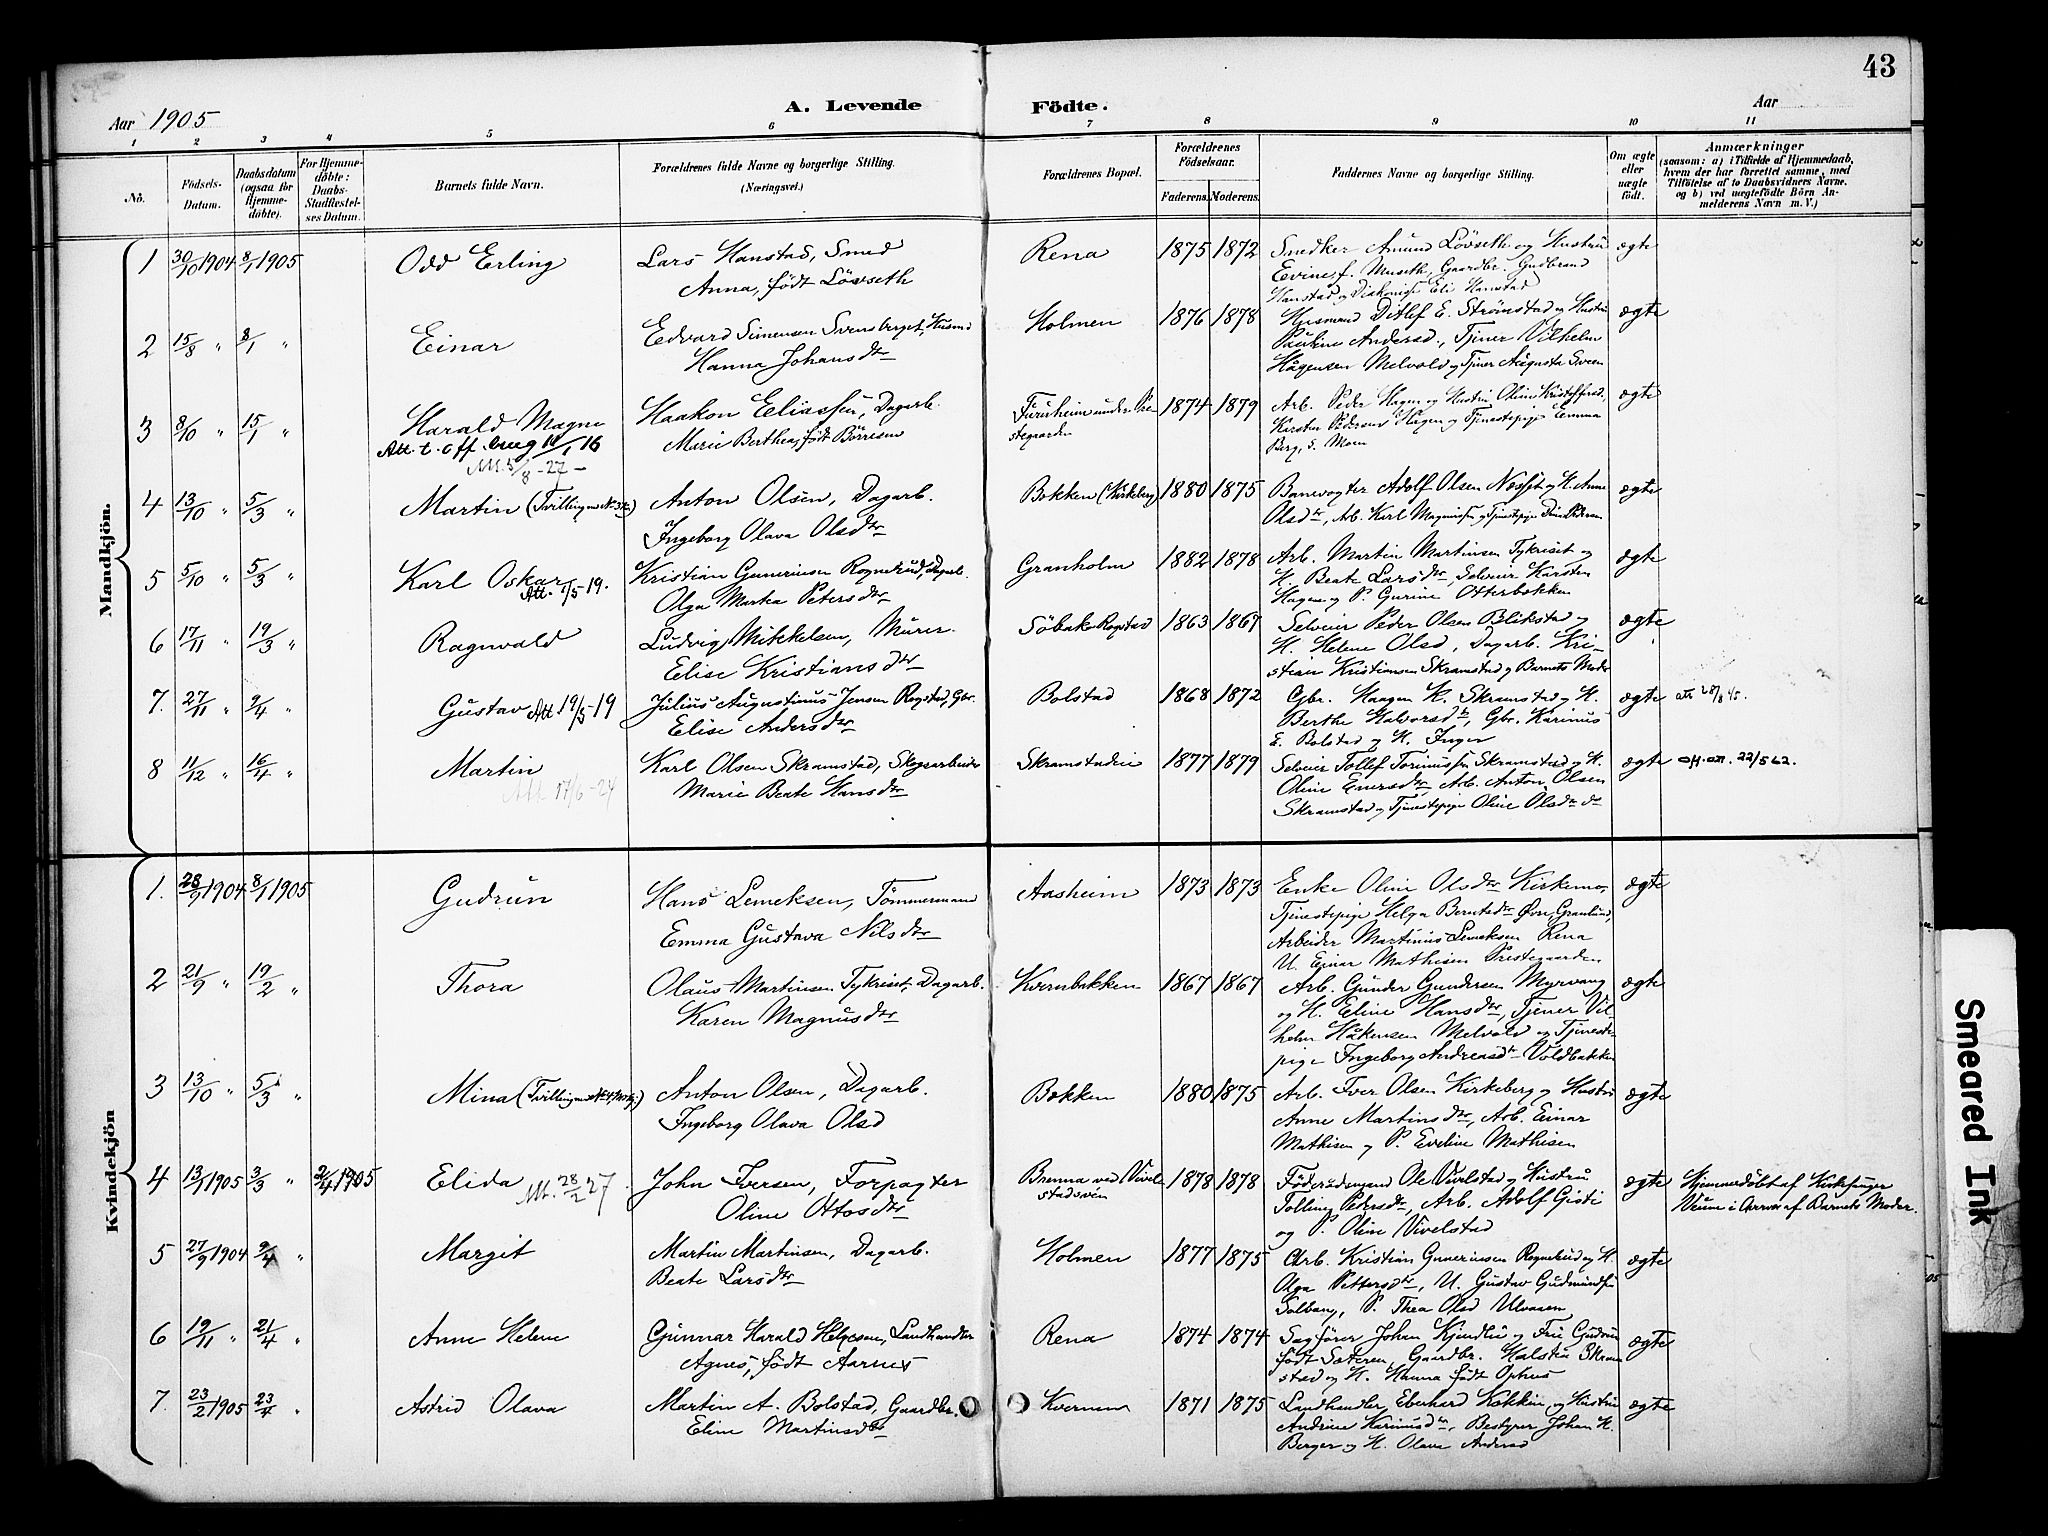 43
Aar 1905
A. Levende Födte.
Aar
1 2 3 4 5 6 7 8 9 10 11
No.
Födsels-Datum.
Daabsdatum (ogsaa for Hjemmedøbte).
For Hjemmedøbte: Daabs-Stadfæstelses Datum.
Barnets fulde Navn.
Forældrenes fulde Navne og borgerlige Stilling. (Næringsvei.)
Forældrenes Bopæl.
Forældrenes Födselsaar.
Faderens. Moderens.
Faddernes Navne og borgerlige Stilling.
Om ægte eller uægte födt.
Anmærkninger
(saasom: a) i Tilfælde af Hjemmedaab, hvem der har forrettet samme, med Tilföielse af to Daabsvidners Navne, og b) ved uægtefödte Börn Anmelderens Navn m. V.)
Mandkjön.
1 30/10 1904 8/1 1905 Odd Erling Lars Hanstad, Smed Rena 1875 1872 Snedker Amund Lövseth og Hustru ægte
Anna, født Lövseth Evine, f. Museth, Gaardbr. Gudbrand
Hanstad og Diakonisse Eli Hanstad
2 15/8 " 8/1 " Einar Edvard Simensen Svensberget, Husmd Holmen 1876 1878 Husmand Ditlef E. Strömstad og Hustru ægte
Hanna Johansdtr Pauline Andersd., Tjener Vilhelm
Hågensen Melvold og Tjener Augusta Sveen
3 8/10 " 15/1 " Harald Magne Haakon Eliassen, Dagarb. Furuheim under Præ- 1874 1879 Arb. Peder Hagen og Hustru Oline Kristoffersd, ægte
Att. t. off. brug 11/1 16 Marie Berthea, født Börresen stegaarden Kirsten Pedersen Hagen og Tjenestepige Emma
Att. 5/8-27- Berg, s. Moen
4 13/10 " 5/3 " Martin (Tvilling med No 3 Kv.) Anton Olsen, Dagarb. Bakken (Kirkeberg) 1880 1875 Banevogter Adolf Olsen Næsset og H. Anne ægte
Ingeborg Olava Olsdtr Olsdtr, Arb. Karl Magnussen og Tjenestepige Dina Pedersen
5 5/10 " 5/3 " Karl Oskar Kristian Guneriusen Rognerud, Dagarb. Granholm 1882 1878 Arb. Martin Martinsen Tykriset og ægte
Att. 1/5-19. Olga Marka Petersdtr H. Beate Larsdtr, Selveier Karsten
Hagen og P. Gurine Otterbakken
6 17/11 " 19/3 " Ragnvald Ludvig Mikkelsen, Murer Söbak Rogstad 1863 1867 Selveier Peder Olsen Blikstad og ægte
Elise Kristiansdtr H. Helene Olsd, Dagarb. Kri-
stian Kristiansen Skramstad og Barnets Moder
7. 27/11 " 9/4 " Gustav Att 19/5-19 Julius Augustinus Jensen Rogstad, Gbr. Bolstad 1868 1872 Gbr. Haagen K. Skramstad og H. ægte att 28/8 45.
Elise Andersdtr Berthe Halvorsdtr, Gbr. Karinus
E. Bolstad og H. Inger
8 11/12 " 16/4 " Martin Karl Olsen Skramstad, Skogsarbeider Skramstadeie 1877 1879 Selveier Tollef Tommessen Skramstad og H. ægte Off. att. 22/5 62.
Att 17/6-24 Marie Beate Hansdtr Oline Enersdtr, Arb. Anton Olsen
Skramstad og Tjenestepige Oline Olsdtr do
Kvindekjön
1. 28/9 1904 8/1 1905 Gudrun Hans Lemeksen, Tömmermand Aasheim 1873 1873 Enke Oline Olsdtr Kirkemo, ægte
Emma Gustava Nilsdtr Tjenestepige Helga Berntsdtr Øvre Granlund,
Arbeider Martinius Lemeksen Rena
U. Einar Mathisen Prestegaarden
2 21/9 " 19/2 " Thora Olaus Martinsen Tykriset, Dagarb. Kvernbakken 1867 1867 Arb. Gunder Gundersen Myrvang ægte
Karen Magnusdtr og H. Eline Hansdtr, Tjener Vil-
helm Håkensen Melvold og Tjeneste-
pige Ingeborg Andreasdtr Voldbakken
3 13/10 " 5/3 " Mina (Tvilling med No 4 Mandkj.) Anton Olsen, Dagarb. Bakken 1880 1875 Arb. Iver Olsen Kirkeberg og Hustru ægte
Ingeborg Olava Olsd Anne Martinsdtr, Arb. Einar
Mathisen og P. Eveline Mathisen
4 13/1 1905 3/3 " 24/4 1905 Elida Att. 28/2 27. John Iversen, Forpagter Brenna ved Vivel- 1878 1878 Föderaadsmand Ole Vivelstad og Hustru ægte Hjemmedöbt af Kirkesanger
Oline Ottosdtr stadsveen Tolline Petersdtr, Arb. Adolf Gisti Neume i Nærvær af Barnets Moder.
og P. Oline Vivelstad
5 27/9 1904 9/4 " Margit Martin Martinsen, Dagarb. Holmen 1877 1875 Arb. Kristian Gunerinsen Rognerud og H. ægte
Beate Larsdtr Olga Pettersdtr, U. Gustav Gudmundsen
Solbang, P. Thea Olsd Ulvaaen
6 19/11 " 21/4 " Anne Helene Gunnar Harald Helgesen, Landhandler Rena 1874 1874 Sagförer Johan Kjendlie og Frue Gudrun ægte
Agnes, født Aarnes født Sæteren, Gaardbr. Halsten Skram-
stad og H. Hanna født Ophus
7. 23/2 1905 23/4 " Astrid Olava Martin A. Bolstad, Gaardbr. Kvernen 1871 1875 Landhandler Eberhard Kokkin og Hustru ægte
Eline Martinsdtr Andrine Karinusdtr, Bestyrer Johan H.
Berger og H. Olava Andersd
Smeared Ink